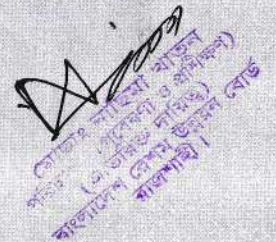 মোছাঃ নাছিমা খাতুন
পরিচালক (গবেষণা ও প্রশিক্ষণ)
(অতিরিক্ত দায়িত্ব)
বাংলাদেশ রেশম উন্নয়ন বোর্ড
রাজশাহী।